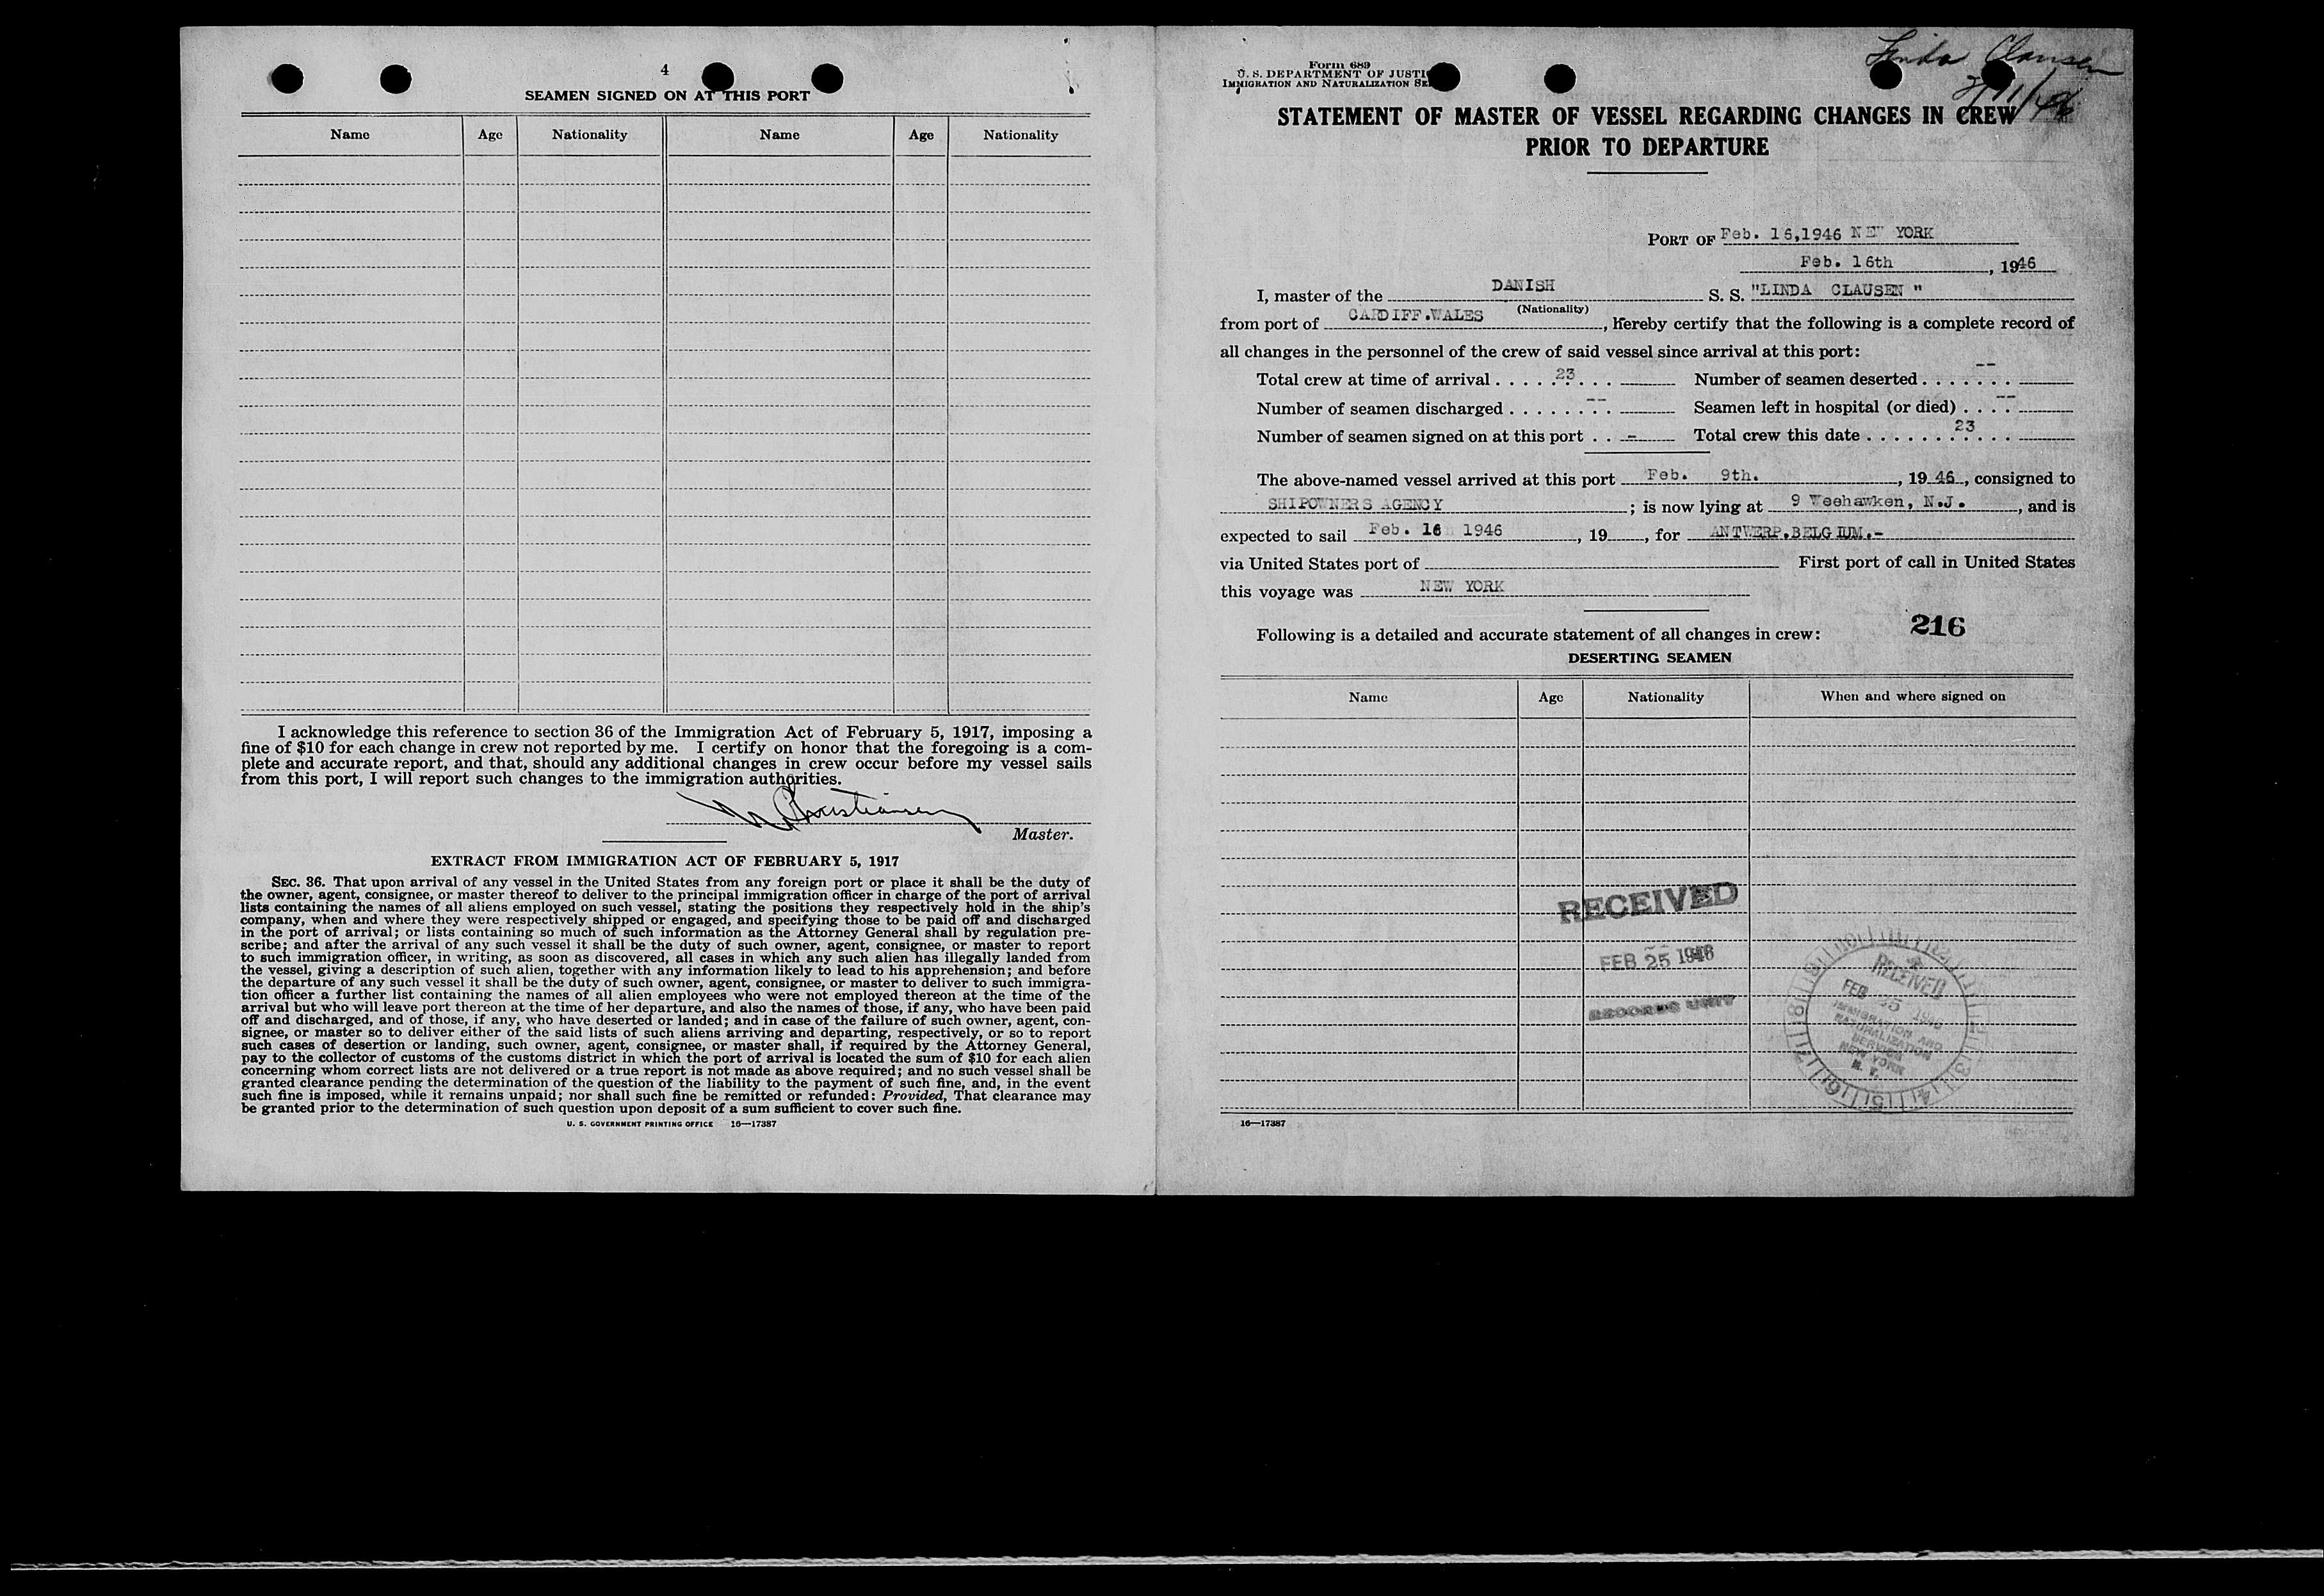 4
SEAMEN SIGNED ON AT THIS PORT
Name Age Nationality Name Age Nationality
I acknowledge this reference to section 36 of the Immigration Act of February 5, 1917, imposing a
fine of $10 for each change in crew not reported by me. I certify on honor that the foregoing is a com-
plete and accurate report, and that, should any additional changes in crew occur before my vessel sails
from this port, I will report such changes to the immigration authorities.
Christiansen
Master.
EXTRACT FROM IMMIGRATION ACT OF FEBRUARY 5, 1917
SEC. 36. That upon arrival of any vessel in the United States from any foreign port or place it shall be the duty of
the owner, agent, consignee, or master thereof to deliver to the principal immigration officer in charge of the port of arrival
lists containing the names of all aliens employed on such vessel, stating the positions they respectively hold in the ship's
company, when and where they were respectively shipped or engaged, and specifying those to be paid off and discharged
in the port of arrival; or lists containing so much of such information as the Attorney General shall by regulation pre-
scribe; and after the arrival of any such vessel it shall be the duty of such owner, agent, consignee, or master to report
to such immigration officer, in writing, as soon as discovered, all cases in which any such alien has illegally landed from
the vessel, giving a description of such alien, together with any information likely to lead to his apprehension; and before
the departure of any such vessel it shall be the duty of such owner, agent, consignee, or master to deliver to such immigra-
tion officer a further list containing the names of all alien employees who were not employed thereon at the time of the
arrival but who will leave port thereon at the time of her departure, and also the names of those, if any, who have been paid
off and discharged, and of those, if any, who have deserted or landed; and in case of the failure of such owner, agent, con-
signee, or master so to deliver either of the said lists of such aliens arriving and departing, respectively, or so to report
such cases of desertion or landing, such owner, agent, consignee, or master shall, if required by the Attorney General,
pay to the collector of customs of the customs district in which the port of arrival is located the sum of $10 for each alien
concerning whom correct lists are not delivered or a true report is not made as above required; and no such vessel shall be
granted clearance pending the determination of the question of the liability to the payment of such fine, and, in the event
such fine is imposed, while it remains unpaid; nor shall such fine be remitted or refunded: Provided, That clearance may
be granted prior to the determination of such question upon deposit of a sum sufficient to cover such fine.
U. S. GOVERNMENT PRINTING OFFICE 16—17387
Linda Clausen
Form 689
U. S. DEPARTMENT OF JUSTI
IMMIGRATION AND NATURALIZATION SE
STATEMENT OF MASTER OF VESSEL REGARDING CHANGES IN CREW
PRIOR TO DEPARTURE
PORT OF Feb. 16,1946 NEW YORK
Feb. 16th, 1946
I, master of the DANISH S. S. "LINDA CLAUSEN "
(Nationality)
from port of CARDIFF.WALES, hereby certify that the following is a complete record of
all changes in the personnel of the crew of said vessel since arrival at this port:
Total crew at time of arrival 23 Number of seamen deserted --
Number of seamen discharged -- Seamen left in hospital (or died) --
Number of seamen signed on at this port - Total crew this date 23
The above-named vessel arrived at this port Feb. 9th., 19 46, consigned to
SHIPOWNERS AGENCY; is now lying at 9 Weehawken, N.J., and is
expected to sail Feb. 16 1946, 19 , for ANTWERP.BELGIUM.-
via United States port of First port of call in United States
this voyage was NEW YORK
Following is a detailed and accurate statement of all changes in crew: 216
DESERTING SEAMEN
Name Age Nationality When and where signed on
RECEIVED
FEB 25 1946
RECORDS UNIT
RECEIVED
FEB 25 1946
IMMIGRATION AND
NATURALIZATION
SERVICE
NEW YORK
N. Y.
16—17387